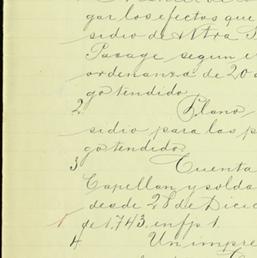 gar los efectos que
sidio de Ntra
Pasage segun
ordenanza de 20
go tendido.
2 Plano
sidio para los p
go tendido
3 Cuenta
Capellan y solda
desde 28 de Dicie
de 1,743, en fp 1.
4 Un impre